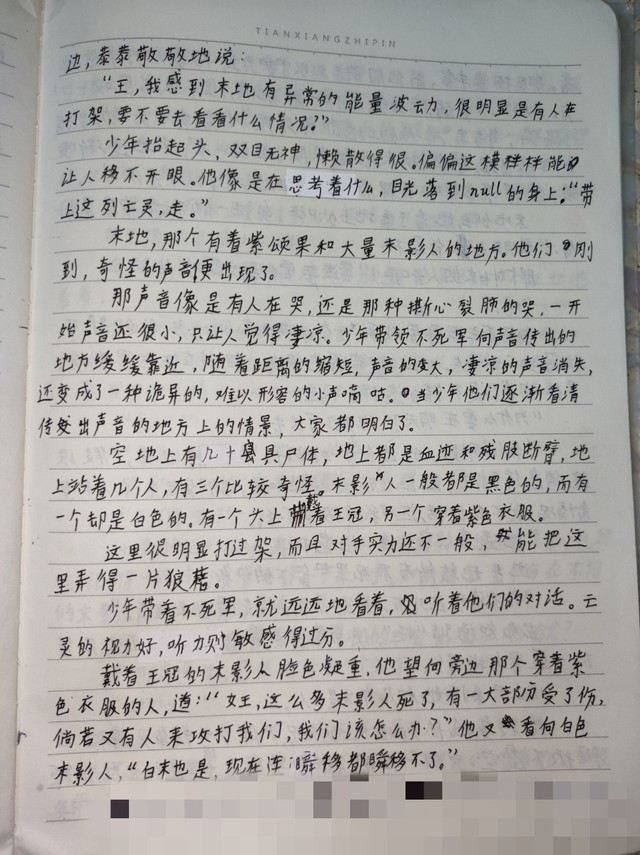 TIANXIANGZHIPIN
边，恭恭敬敬地说：
“王，我感到末地有异常的能量波动，很明显是有人在
打架，要不要去看看什么情况？”
少年抬起头，双目无神，懒散得很。偏偏这模样样能
让人移不开眼。他像是在思考着什么，目光落到null的身上：“带
上这列亡灵，走。”
末地，那个有着紫颂果和大量末影人的地方。他们刚
到，奇怪的声音便出现了。
那声音像是有人在哭，还是那种撕心裂肺的哭，一开
始声音还很小，只让人觉得凄凉。少年带领不死军向声音传出的
地方缓缓靠近，随着距离的缩短，声音的变大，凄凉的声音消失，
还变成了一种诡异的，难以形容的小声嘀咕。当少年他们逐渐看清
传出声音的地方上的情景，大家都明白了。
空地上有几十具尸体，地上都是血迹和残肢断臂，地
上站着几个人，有三个比较奇怪。末影人一般都是黑色的，而有
一个却是白色的。有一个头上戴着王冠，另一个穿着紫色衣服。
这里很明显打过架，而且对手实力还不一般，能把这
里弄得一片狼藉。
少年带着不死军，就远远地看着，听着他们的对话。亡
灵的视力好，听力则敏感得过分。
戴着王冠的末影人脸色凝重，他望向旁边那个穿着紫
色衣服的人，道：“女王，这么多末影人死了，有一大部分受了伤，
倘若又有人来攻打我们，我们该怎么办？”他又看向白色
末影人，“白末也是，现在连瞬移都瞬移不了。”